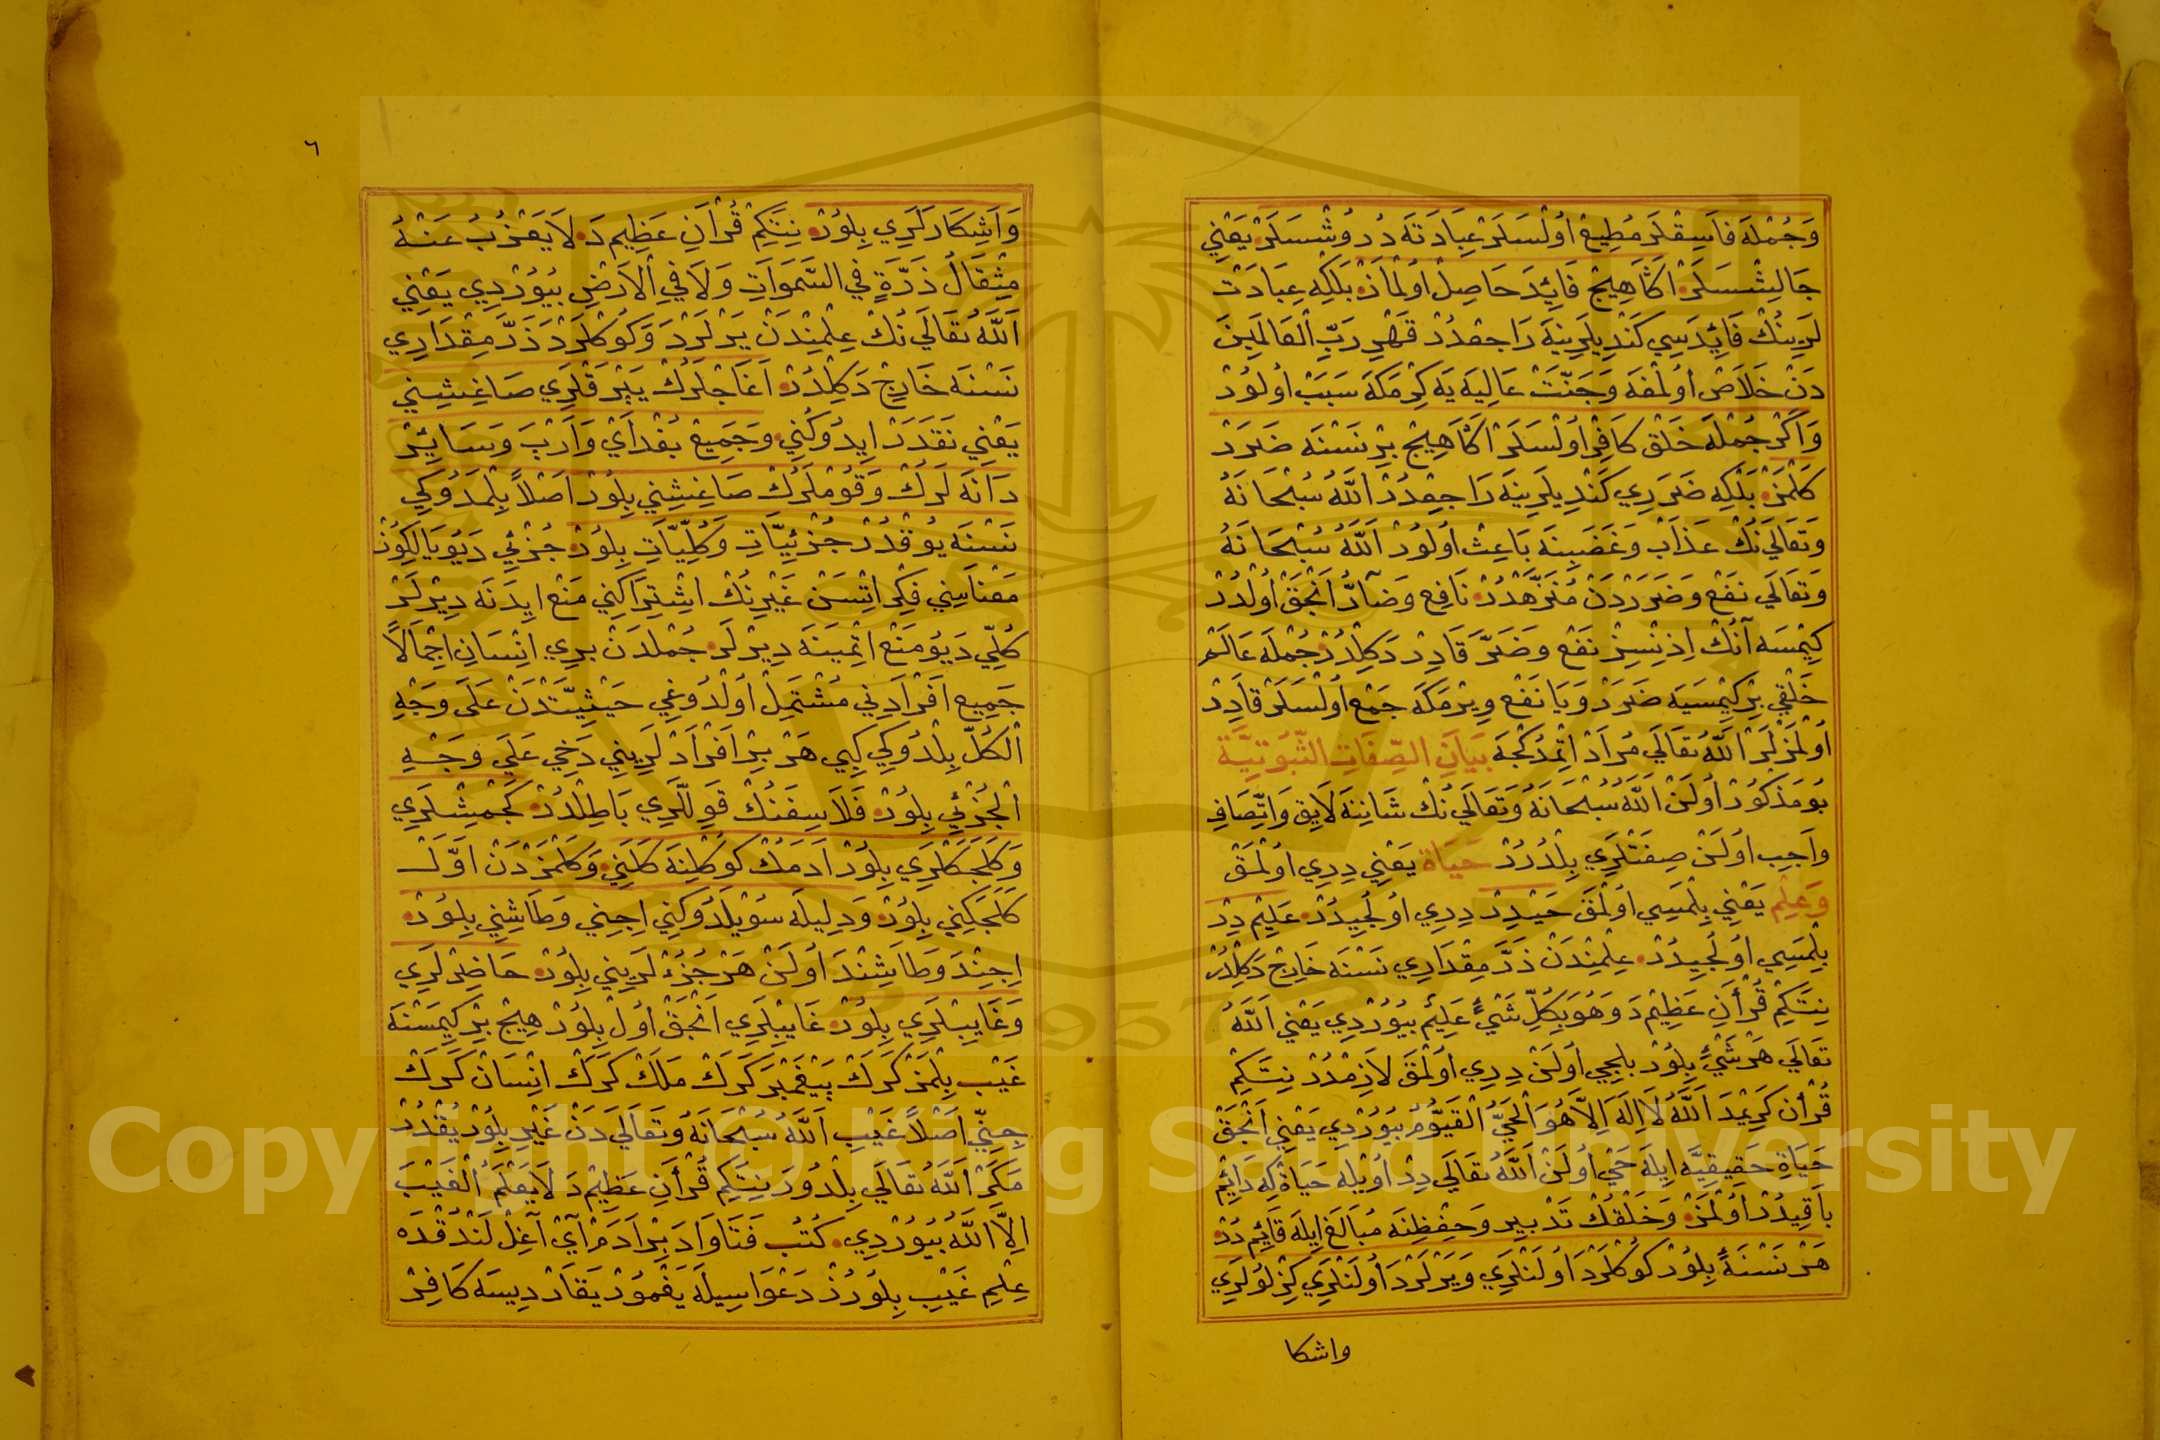 وَجُمْلَه فَاسِقْلَرْ مُطِيعْ اُولْسَلَرْ عِبَادَتَه دُرُوشْسَلَرْ يَعْنِي
جَالِشْسَلَرْ اَكَا هِيچْ فَائِدَه حَاصِلْ اُولْمَازْ بَلْكِه عِبَادَتْ
لَرِينُكْ فَائِدَسِي كَنْدِيلَرِينَه رَاجِعْدُرْ قَهْرِ رَبِّ الْعَالَمِينَ
دَنْ خَلَاصْ اُولْمَغَه وَجَنَّتْ عَالِيَه يَه كِرْمَكَه سَبَبْ اُولُورْ
وَاَكَرْ جُمْلَه خَلْق كَافِرْ اُولْسَلَرْ اَكَا هِيچْ بِرْ نَسْنَه ضَرَرْ
كَلْمَزْ بَلْكِه ضَرَرِي كَنْدِيلَرِينَه رَاجِعْدُرْ اَللّٰهُ سُبْحَانَهُ
وَتَعَالَي نُكْ عَذَابْ وَغَضَبِنَه بَاعِثْ اُولُورْ اَللّٰهُ سُبْحَانَهُ
وَتَعَالَي نَفْع وَضَرَرْدَنْ مُنَزَّهْدُرْ نَافِع وَضَآرّ اَنْجَقْ اُولْدُرْ
كِيمْسَه آنُكْ اِذْنِسِزْ نَفْع وَضَرَّ قَادِرْ دَكِلْدُرْ جُمْلَه عَالَمْ
خَلْقِي بِرْ كِيمْسَيَه ضَرَرْ وَيَا نَفْع وِيرْمَكَه جَمْع اُولْسَلَرْ قَادِرْ
اُولْمَزْلَرْ اَللّٰهُ تَعَالَي مُرَادْ اِتْمَدُكْجَه بَيَانِ الصِّفَاتِ الثُّبُوتِيَّة
بُو مَذْكُورْ اُولَنْ اَللّٰهُ سُبْحَانَهُ وَتَعَالَي نُكْ شَانِنَه لَايِق وَاتِّصَافِ
وَاجِب اُولَنْ صِفَتْلَرِي بِلْدُرُرْ حَيَاة يَعْنِي دِرِي اُولْمَقْ
وَعِلِم يَعْنِي بِلْمَسِي اُولْمَقْ حَيْدِرْ دِرِي اُولُجِيدُرْ عَلِيمْ دِرْ
بِلْمَسِي اُولُجِيدُرْ عِلْمِنْدَنْ ذَرَّ مِقْدَارِي نَسْنَه خَارِجْ دَكِلْدُرْ
نِتَكِمْ قُرْأنِ عَظِيمْ دَه وَهُوَ بِكُلِّ شَيْءٍ عَلِيم بُيُورْدِي يَعْنِي اَللّٰهُ
تَعَالَي هَرْ شَيْءٍ بِلُورْ بِلِجِي اُولَنْ دِرِي اُولْمَقْ لَازِمْدُرْ نِتَكِمْ
قُرْأنِ كَرِيمْدَه اَللّٰهُ لَا اِلٰهَ اِلَّا هُوَ الْحَيُّ الْقَيُّومُ بُيُورْدِي يَعْنِي اَنْجَقْ
حَيَاةِ حَقِيقِيَّه اِيلَه حَيّ اُولَنْ اَللّٰهُ تَعَالَي دِرْ اُويْلَه حَيَاة كِه دَائِمْ
بَاقِيدُرْ اُولْمَزْ وَخَلْقُكْ تَدْبِيرِ وَحِفْظِنَه مُبَالَغَ اِيلَه قَائِمْ دُرْ
هَرْ نَسْنَه بِلُورْ كُوكْلَرْدَه اُولَنْلَرِي وَيَرْلَرْدَه اُولَنْلَرِي كِزْلُولَرِي
واشكا
٦
وَاَشِكَارَلَرِي بِلُورْ نِتَكِمْ قُرْأنِ عَظِيمْ دَه لَا يَعْزُبُ عَنْهُ
مِثْقَالُ ذَرَّةٍ فِي السَّمٰوَاتِ وَلَا فِي الْاَرْضِ بُيُورْدِي يَعْنِي
اَللّٰهُ تَعَالَي نُكْ عِلْمِنْدَنْ يَرْلَرْدَه وَكُوكْلَرْدَه ذَرَّ مِقْدَارِي
نَسْنَه خَارِجْ دَكِلْدُرْ اَغَاجْلَرُكْ يَپْرَقْلَرِي صَاغِشِنِي
يَعْنِي نَقَدَرْ اِيدُوكُنِي وَجَمِيعْ بُغْدَايْ وَاَرْپَه وَسَائِرْ
دَانَه لَرُكْ وَقُومْلَرُكْ صَاغِشِنِي بِلُورْ اَصْلًا بِلْمَدُوكِي
نَسْنَه يُوقْدُرْ جُزْئِيَّاتِ وَكُلِّيَّاتِ بِلُورْ جُزْئِي دَيُو يَالِكُوزْ
مَعْنَاسِنِي فِكِرْ اتْسَنْ غَيْرِنُكْ اِشْتِرَاكَنِي مَنْع اِيدَنَه دِيرْلَرْ
كُلِّي دَيُو مَنْع اِتْمِيَنَه دِيرْلَرْ جُمْلَدَنْ بِرِي اِنْسَانِ اِجْمَالًا
جَمِيعِ اَفْرَادِنِي مُشْتَمِلْ اُولْدُوغِي حَيْثِيَّتْدَنْ عَلَى وَجْهِ
الْكُلّ بِلْدُوكِي كِبِي هَرْ بِرْ اَفْرَادْ لَرِينِي دَخِي عَلَي وَجْهِ
الْجُزْئِي بِلُورْ فَلَاسِفَنُكْ قَوِللَّرِي بَاطِلْدُرْ كَجْمِشْلَرِي
وَكَلَجَكْلَرِي بِلُورْ اَدَمُكْ كُوكْلِنَه كَلَنِي وَكَلْمَزْدَنْ اَوَّلْ
كَلَجَكِنِي بِلُورْ وَدِلِيلَه سُويْلَدُوكَنِي اِچِنِي وَطَاشِنِي بِلُورْ
اِچِنْدَه وَطَاشِنْدَه اُولَنْ هَرْ جُزْءْ لَرِينِي بِلُورْ حَاضِرْلَرِي
وَغَايِبْلَرِي بِلُورْ غَايِبْلَرِي اَنْجَقْ اُولْ بِلُورْ هِيچْ بِرْ كِيمَسْنَه
غَيْب بِلْمَزْ كَرَكْ پَيْغَمْبَرْ كَرَكْ مَلَكْ كَرَكْ اِنْسَانْ كَرَكْ
جِنِّي اَصْلًا غَيْبِ اَللّٰهُ سُبْحَانَهُ وَتَعَالَي دَنْ غَيْرِ بِلُورْ يُقْدُرْ
مَكَرْ اَللّٰهُ تَعَالَي بِلْدُورَ نِتَكِمْ قُرْأنِ عَظِيمْ دَه لَا يَعْلَمُ الْغَيْبَ
اِلَّا اللّٰهُ بُيُورْدِي كُتُب فَتَاوَادَه بِرْ اَدَمْ آيْ آغِلْ لَنْدُقْدَه
عِلْمِ غَيْبِ بِلُورُزْ دَعْوَاسِيلَه يَغْمُورْ يَغَارْ دِيسَه كَافِرْ
Copyright © King Saud University
1957